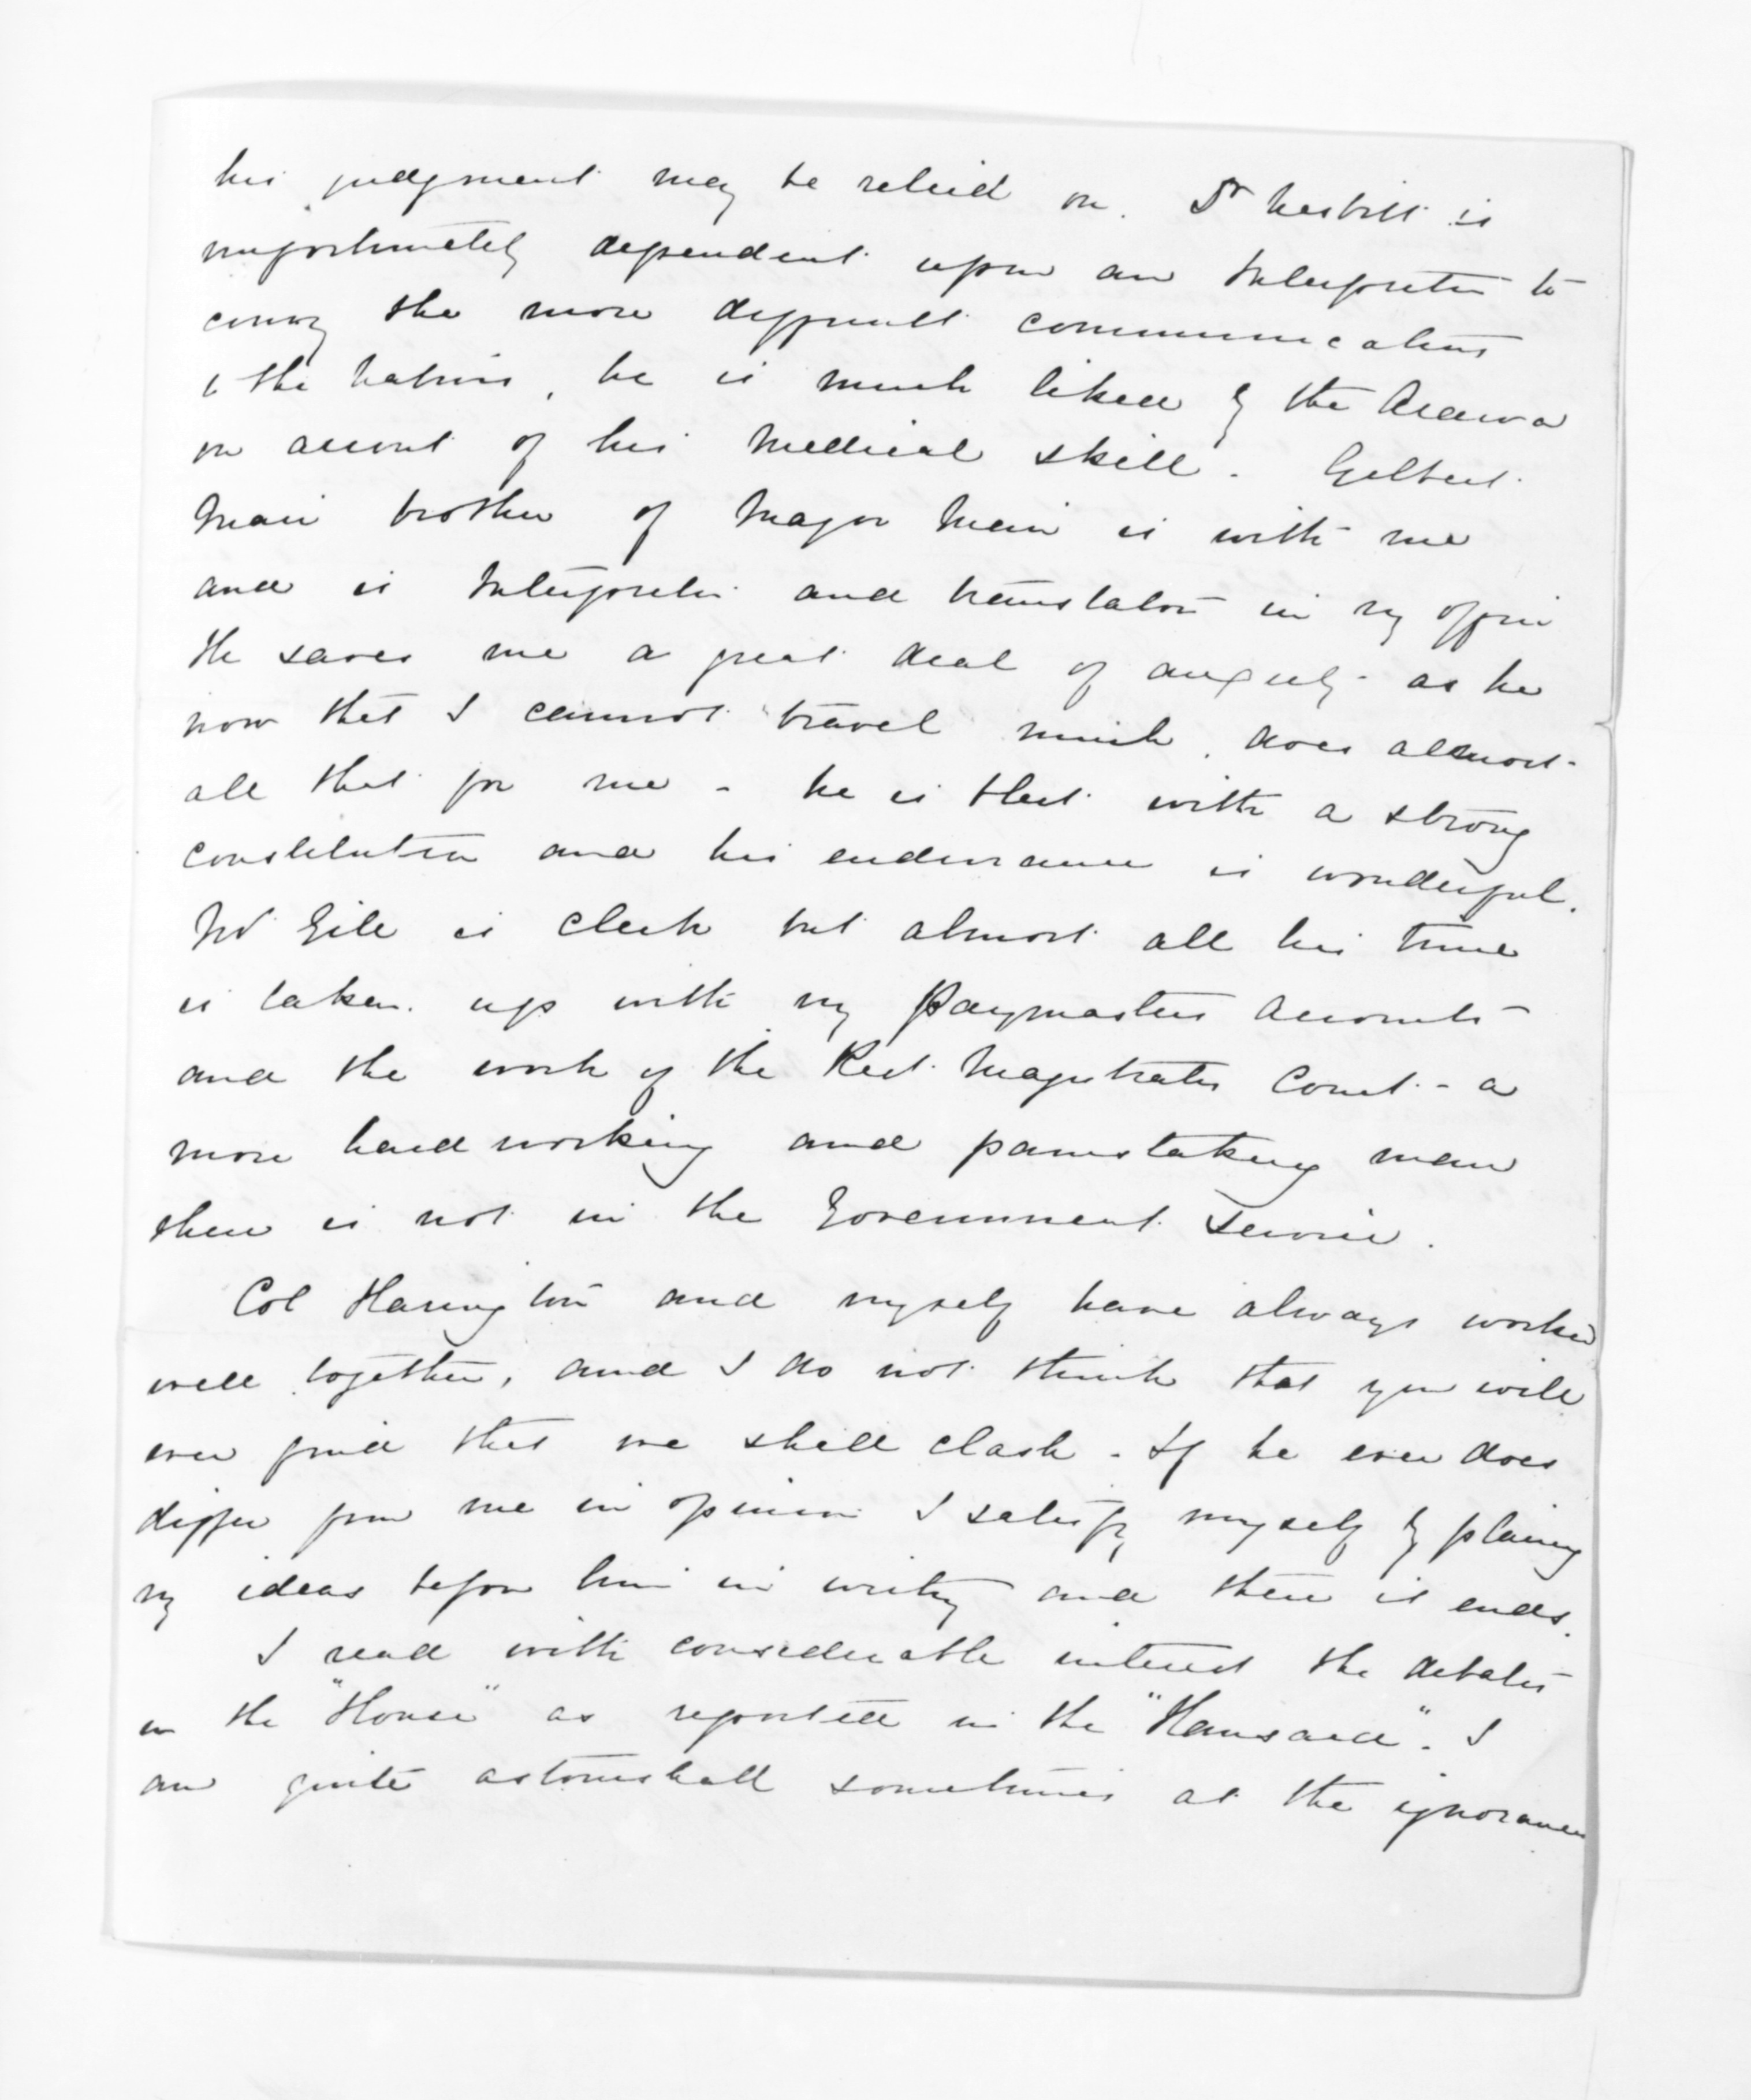 his judgment may be relied on. Dr Nesbitt is
unfortunately dependent upon an Interpreter to
convey the more difficult communications
to the Natives, he is much liked by the Arawa
on account of his Medical skill. Gilbert
Mair brother of Major Mair is with me
and is Interpreter and translator in my office
He saves me a great deal of anxiety as he
now that I cannot travel much, does almost
all that for me - he is blest with a strong
constitution and his endurance is wonderful.
Mr Gill is clerk but almost all his time
is taken up with my Paymasters Accounts
and the work of the Rest. Magistrates Court - a
more hardworking and painstaking man
there is not in the Government Service.
Col Harington and myself have always worked
well together, and I do not think that you will
ever find that we shall clash - If he ever does
differ from me in opinion I satisfy myself by placing
my ideas before him in writing and there it ends.
I read with considerable interest the debates
in the "House" as reported in the "Hansard". I
am quite astonished sometimes at the ignorance